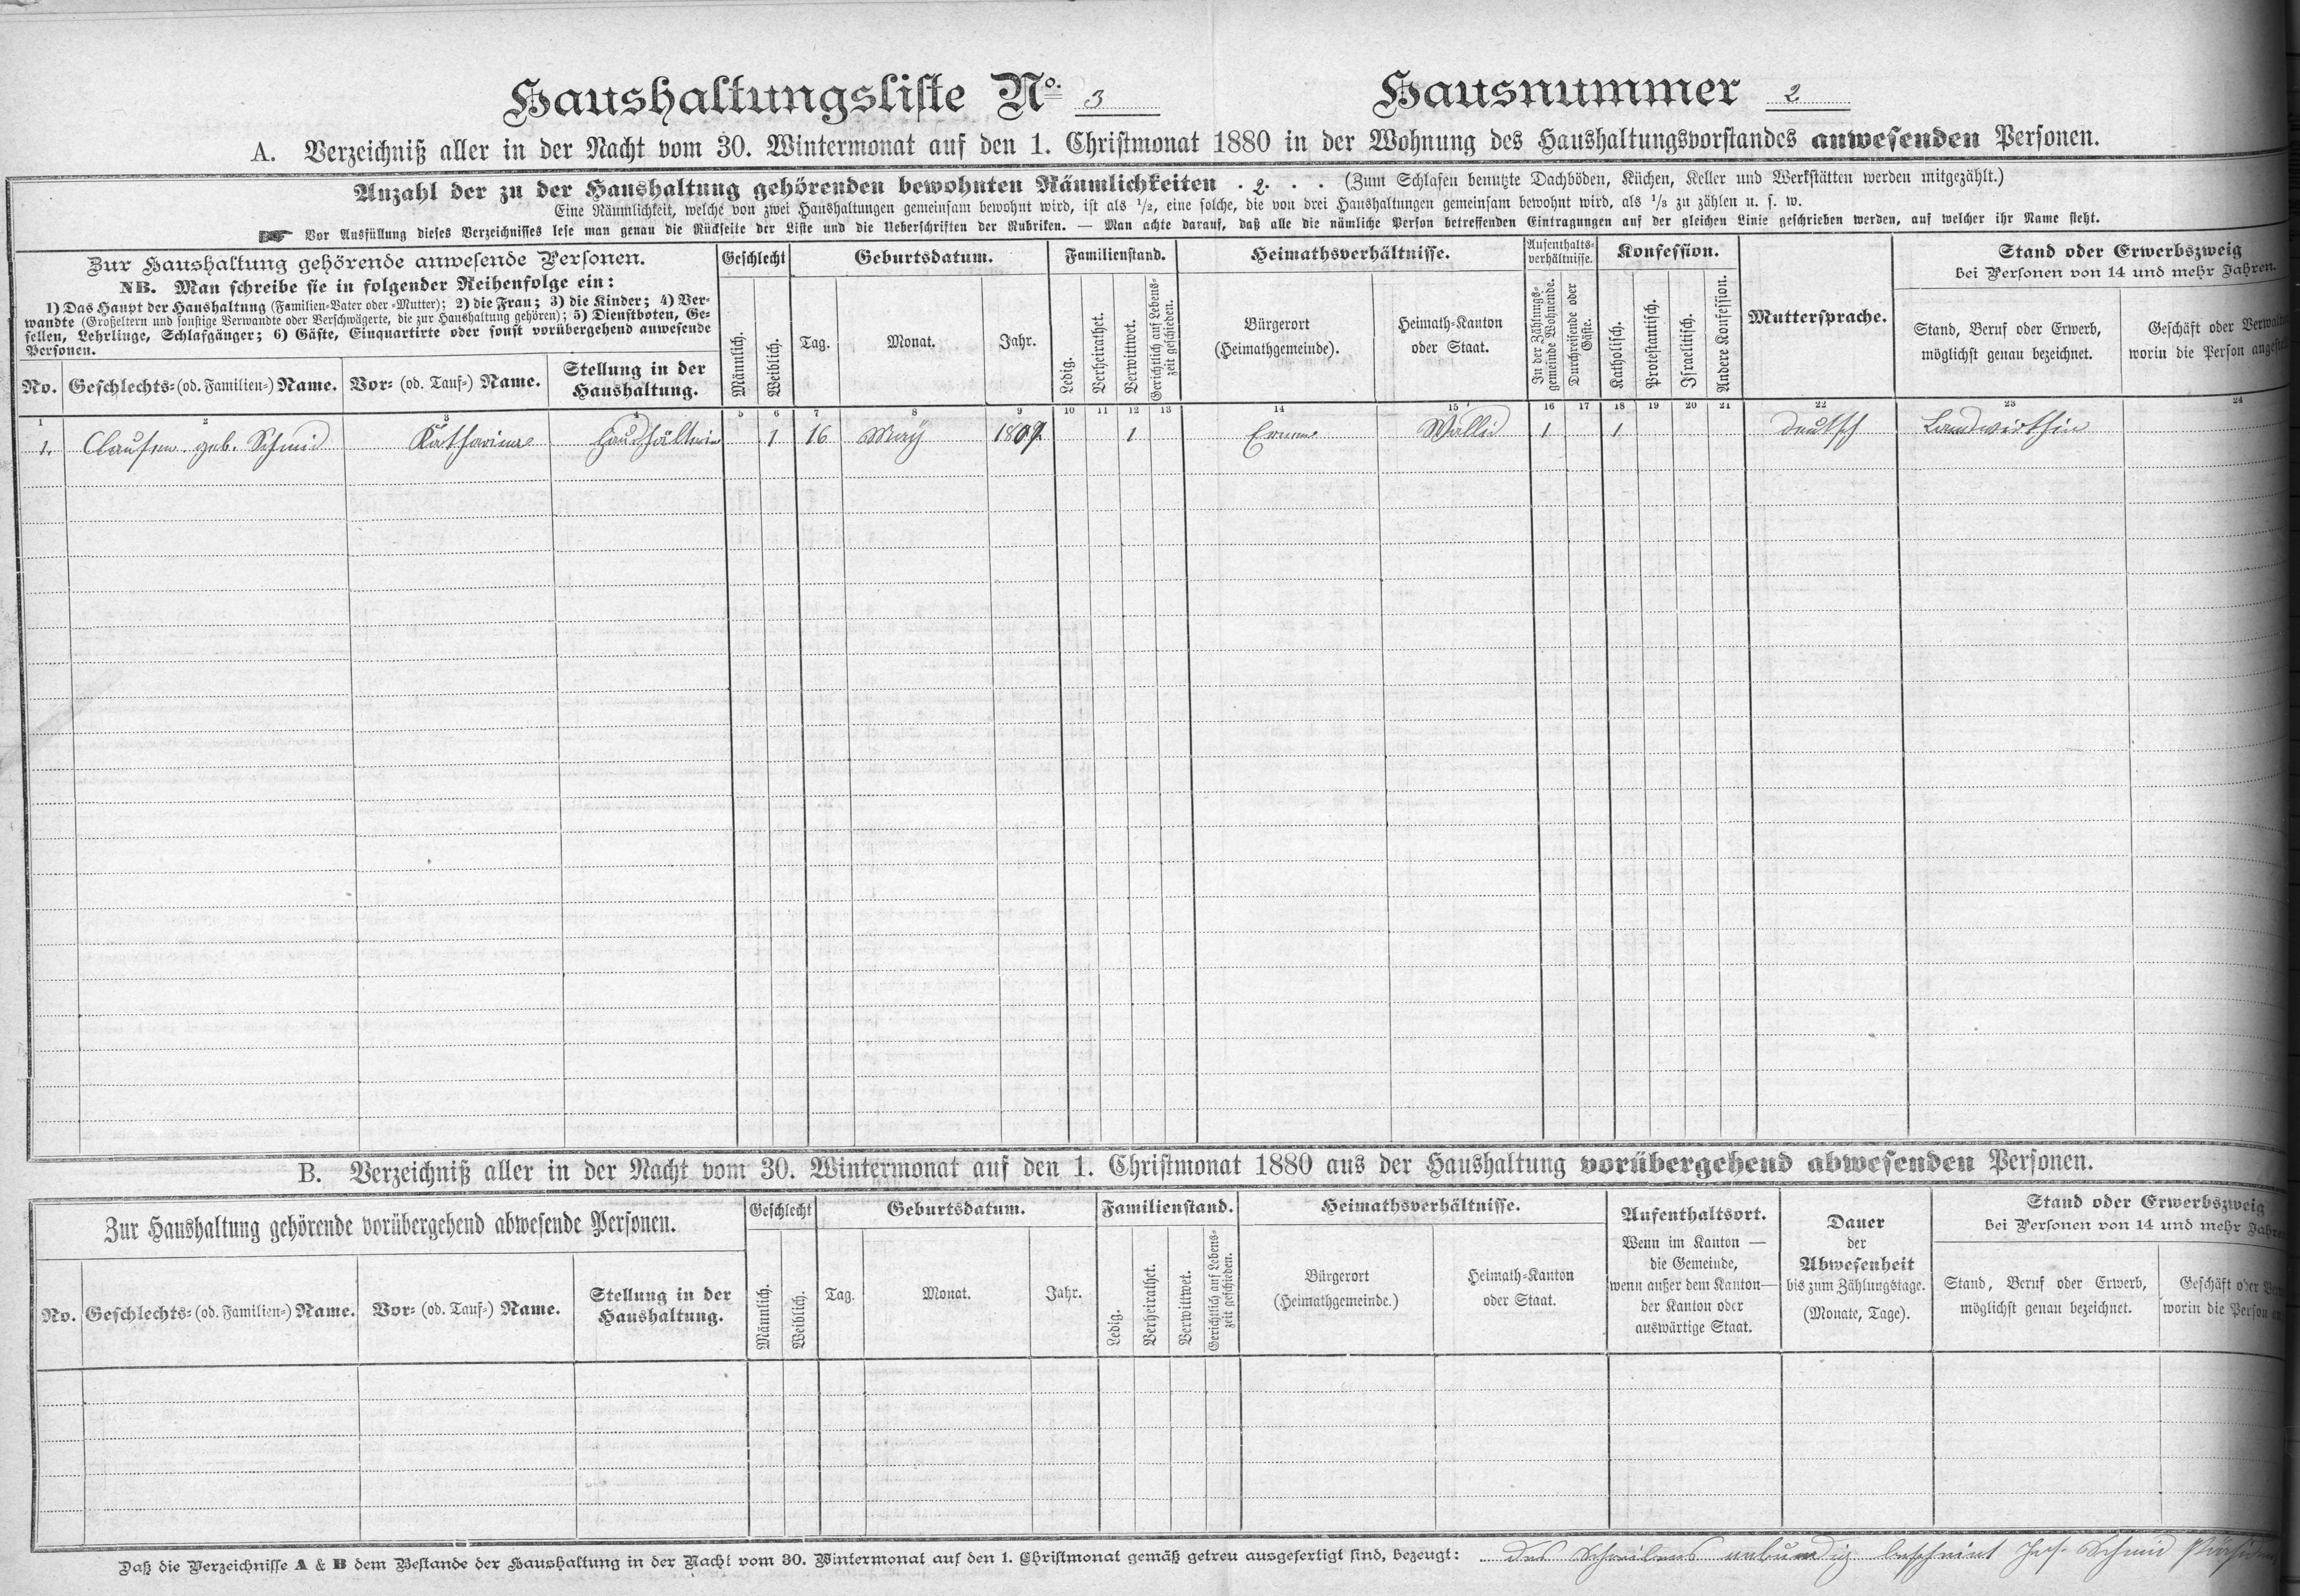 Haushaltungsliste No. 3 Hausnummer 2
A. Verzeichniß aller in der Nacht vom 30. Wintermonat auf den 1. Christmonat 1880 in der Wohnung des Haushaltungsvorstandes anwesenden Personen.
Anzahl der zu der Haushaltung gehörenden bewohnten Räumlichkeiten . 2. . . (Zum Schlafen benutzte Dachböden, Küchen, Keller und Werkstätten werden mitgezählt.)
Eine Räumlichkeit, welche von zwei Haushaltungen gemeinsam bewohnt wird, ist als 1/2, eine solche, die von drei Haushaltungen gemeinsam bewohnt wird, als 1/3 zu zählen u. s. w.
Vor Ausfüllung dieses Verzeichnisses lese man genau die Rückseite der Liste und die Ueberschriften der Rubriken. — Man achte darauf, daß alle die nämliche Person betreffenden Eintragungen auf der gleichen Linie geschrieben werden, auf welcher ihr Name steht.
Zur Haushaltung gehörende anwesende Personen.
NB. Man schreibe sie in folgender Reihenfolge ein:
1) Das Haupt der Haushaltung (Familien-Vater oder -Mutter); 2) die Frau; 3) die Kinder; 4) Ver-
wandte (Großeltern und sonstige Verwandte oder Verschwägerte, die zur Haushaltung gehören); 5) Dienstboten, Ge-
sellen, Lehrlinge, Schlafgänger; 6) Gäste, Einquartirte oder sonst vorübergehend anwesende
Personen.
No. Geschlechts- (od. Familien-) Name. Vor- (od. Tauf-) Name. Stellung in der
Haushaltung.
Geschlecht
Männlich. Weiblich.
Geburtsdatum.
Tag. Monat. Jahr.
Familienstand.
Ledig. Verheirathet. Verwittwet. Gerichtlich auf Lebens-
zeit geschieden.
Heimathsverhältnisse.
Bürgerort
(Heimathgemeinde).
Heimath-Kanton
oder Staat.
Aufenthalts-
verhältnisse.
In der Zählungs-
gemeinde Wohnende.
Durchreisende oder
Gäste.
Konfession.
Katholisch. Protestantisch. Israelitisch. Andere Konfession.
Muttersprache.
Stand oder Erwerbszweig
bei Personen von 14 und mehr Jahren.
Stand, Beruf oder Erwerb,
möglichst genau bezeichnet.
Geschäft oder
worin die Person
1 2 3 4 5 6 7 8 9 10 11 12 13 14 15 16 17 18 19 20 21 22 23 24
1. Clausen geb. Schmid Katharina Haushälterin 1 16 May 1809 1 Ernen Wallis 1 1 deutsch Landwirthin
B. Verzeichniß aller in der Nacht vom 30. Wintermonat auf den 1. Christmonat 1880 aus der Haushaltung vorübergehend abwesenden Personen.
Zur Haushaltung gehörende vorübergehend abwesende Personen.
No. Geschlechts- (od. Familien-) Name. Vor- (od. Tauf-) Name. Stellung in der
Haushaltung.
Geschlecht
Männlich. Weiblich.
Geburtsdatum.
Tag. Monat. Jahr.
Familienstand.
Ledig. Verheirathet. Verwittwet. Gerichtlich auf Lebens-
zeit geschieden.
Heimathsverhältnisse.
Bürgerort
(Heimathgemeinde.)
Heimath-Kanton
oder Staat.
Aufenthaltsort.
Wenn im Kanton —
die Gemeinde,
wenn außer dem Kanton—
der Kanton oder
auswärtige Staat.
Dauer
der
Abwesenheit
bis zum Zählungstage.
(Monate, Tage).
Stand oder Erwerbszweig
bei Personen von 14 und mehr
Stand, Beruf oder Erwerb,
möglichst genau bezeichnet.
Geschäft oder
worin die Person
Daß die Verzeichnisse A & B dem Bestande der Haushaltung in der Nacht vom 30. Wintermonat auf den 1. Christmonat gemäß getreu ausgefertigt sind, bezeugt: Des Schreibens unkundig bescheint Schmid